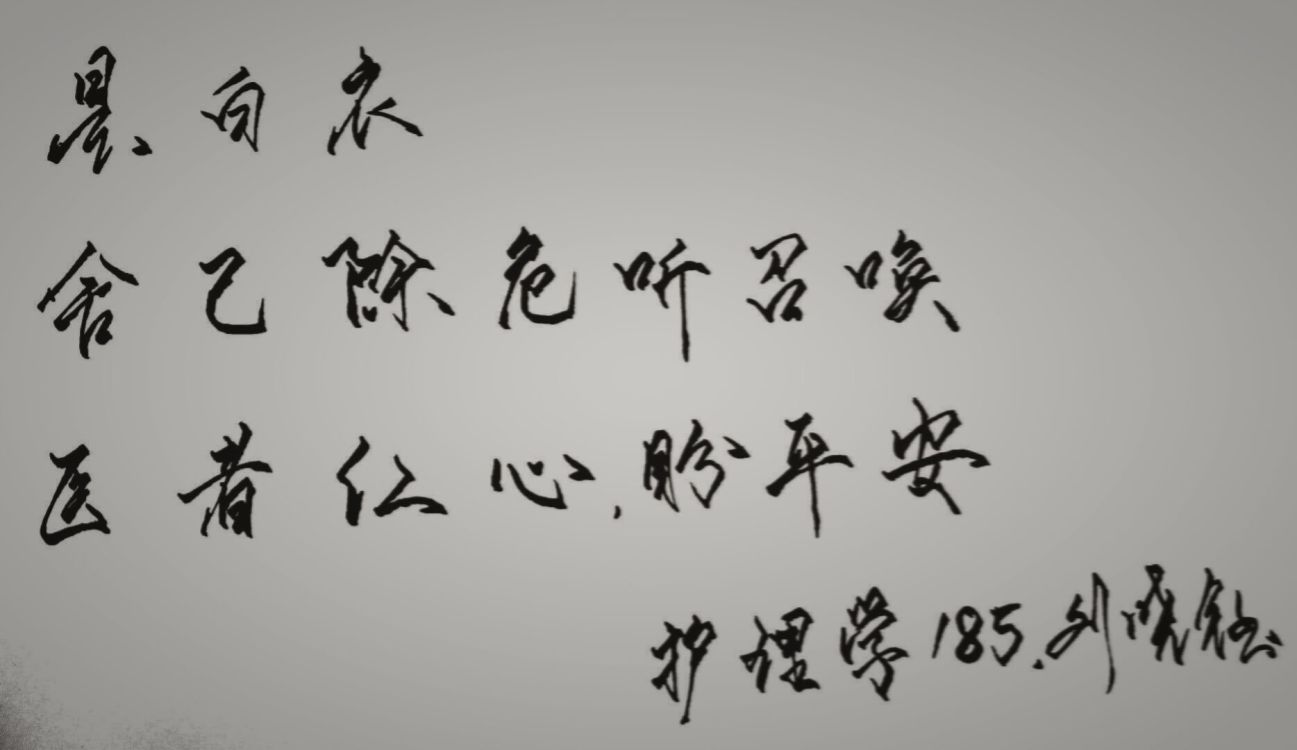 白衣
舍己除危听召唤
医者仁心,盼平安
护理学185.刘晓钰